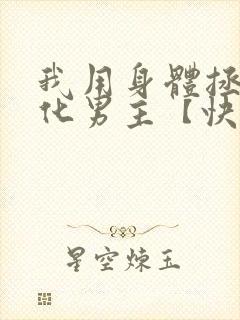 我用身體拯
化男主【快
星空煉玉